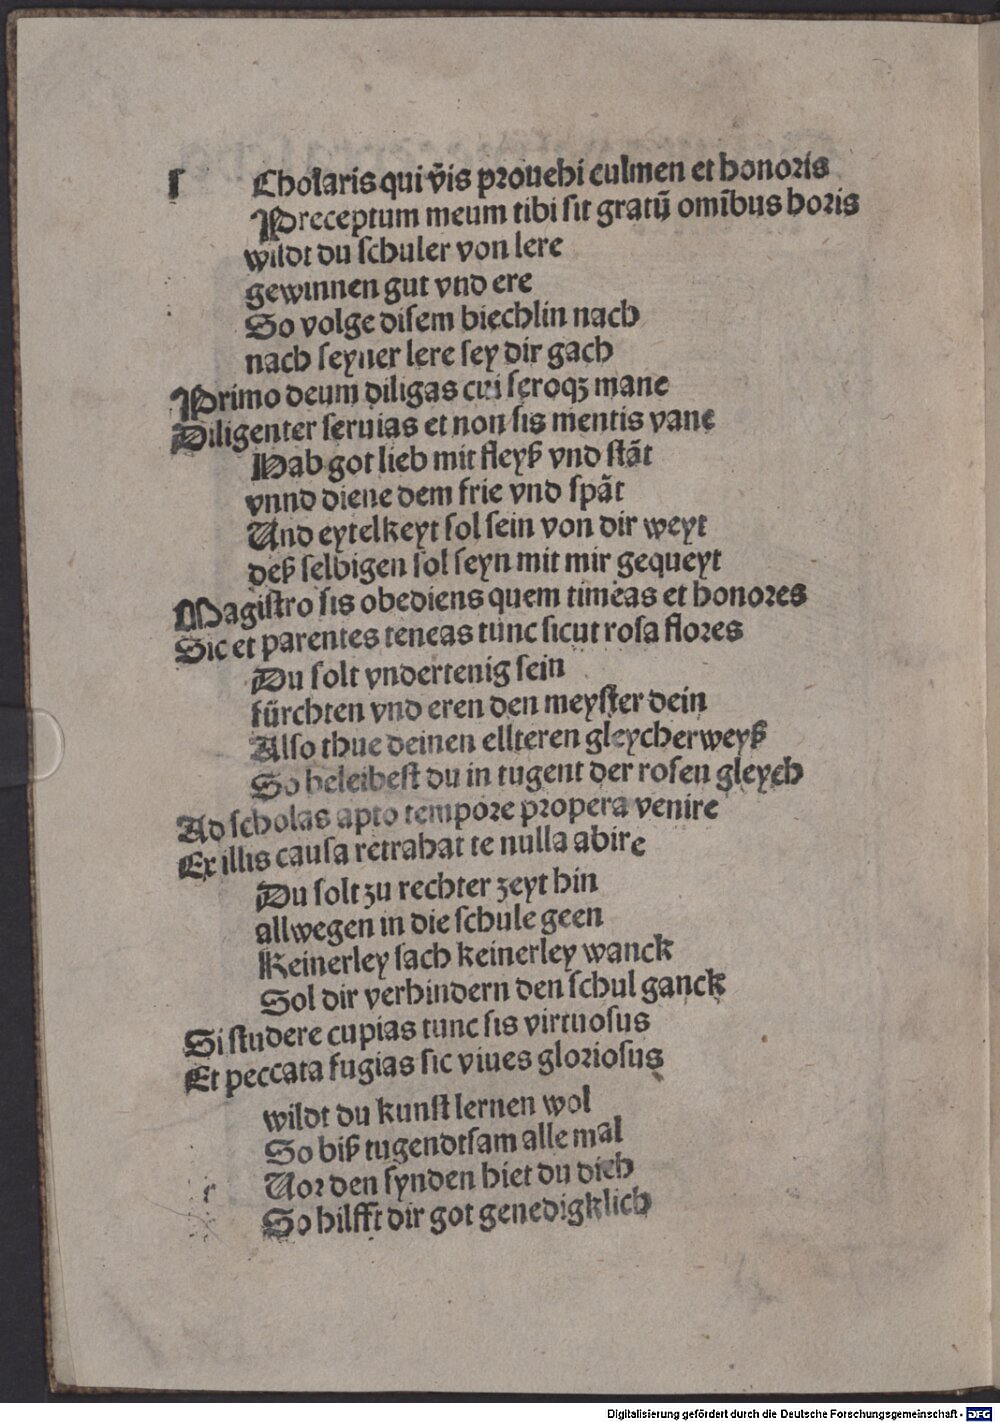 ſ Cholaris qui v̄is prouehi culmen et honoris
Preceptum meum tibi ſit gratū omībus horis
wildt du ſchuler von lere
gewinnen gut vnd ere
So volge diſem biechlin nach
nach ſeyner lere ſey dir gach
Primo deum diligas cui ſeroqꝫ mane
Diligenter ſeruias et non ſis mentis vane
Hab got lieb mit fleyß vnd ſtãt
vnnd diene dem frie vnd ſpãt
Und eytelkeyt ſol ſein von dir weyt
deß ſelbigen ſol ſeyn mit mir gequeyt
Magiſtro ſis obediens quem timeas et honores
Sic et parentes teneas tunc ſicut roſa flores
Du ſolt vndertenig ſein
fürchten vnd eren den meyſter dein
Alſo thue deinen ellteren gleycherweyß
So beleibeſt du in tugent der roſen gleych
Ad ſcholas apto tempore propera venire
Ex illis cauſa retrahat te nulla abire
Du ſolt zu rechter zeyt hin
allwegen in die ſchule geen
Keinerley ſach keinerley wanck
Sol dir verhindern den ſchul ganck
Si ſtudere cupias tunc ſis virtuoſus
Et peccata fugias ſic viues glorioſus
wildt du kunſt lernen wol
So biß tugendtſam alle mal
Uor den ſynden hiet du dich
So hilfft dir got genedigklich
Digitalisierung gefördert durch die Deutsche Forschungsgemeinschaft - DFG